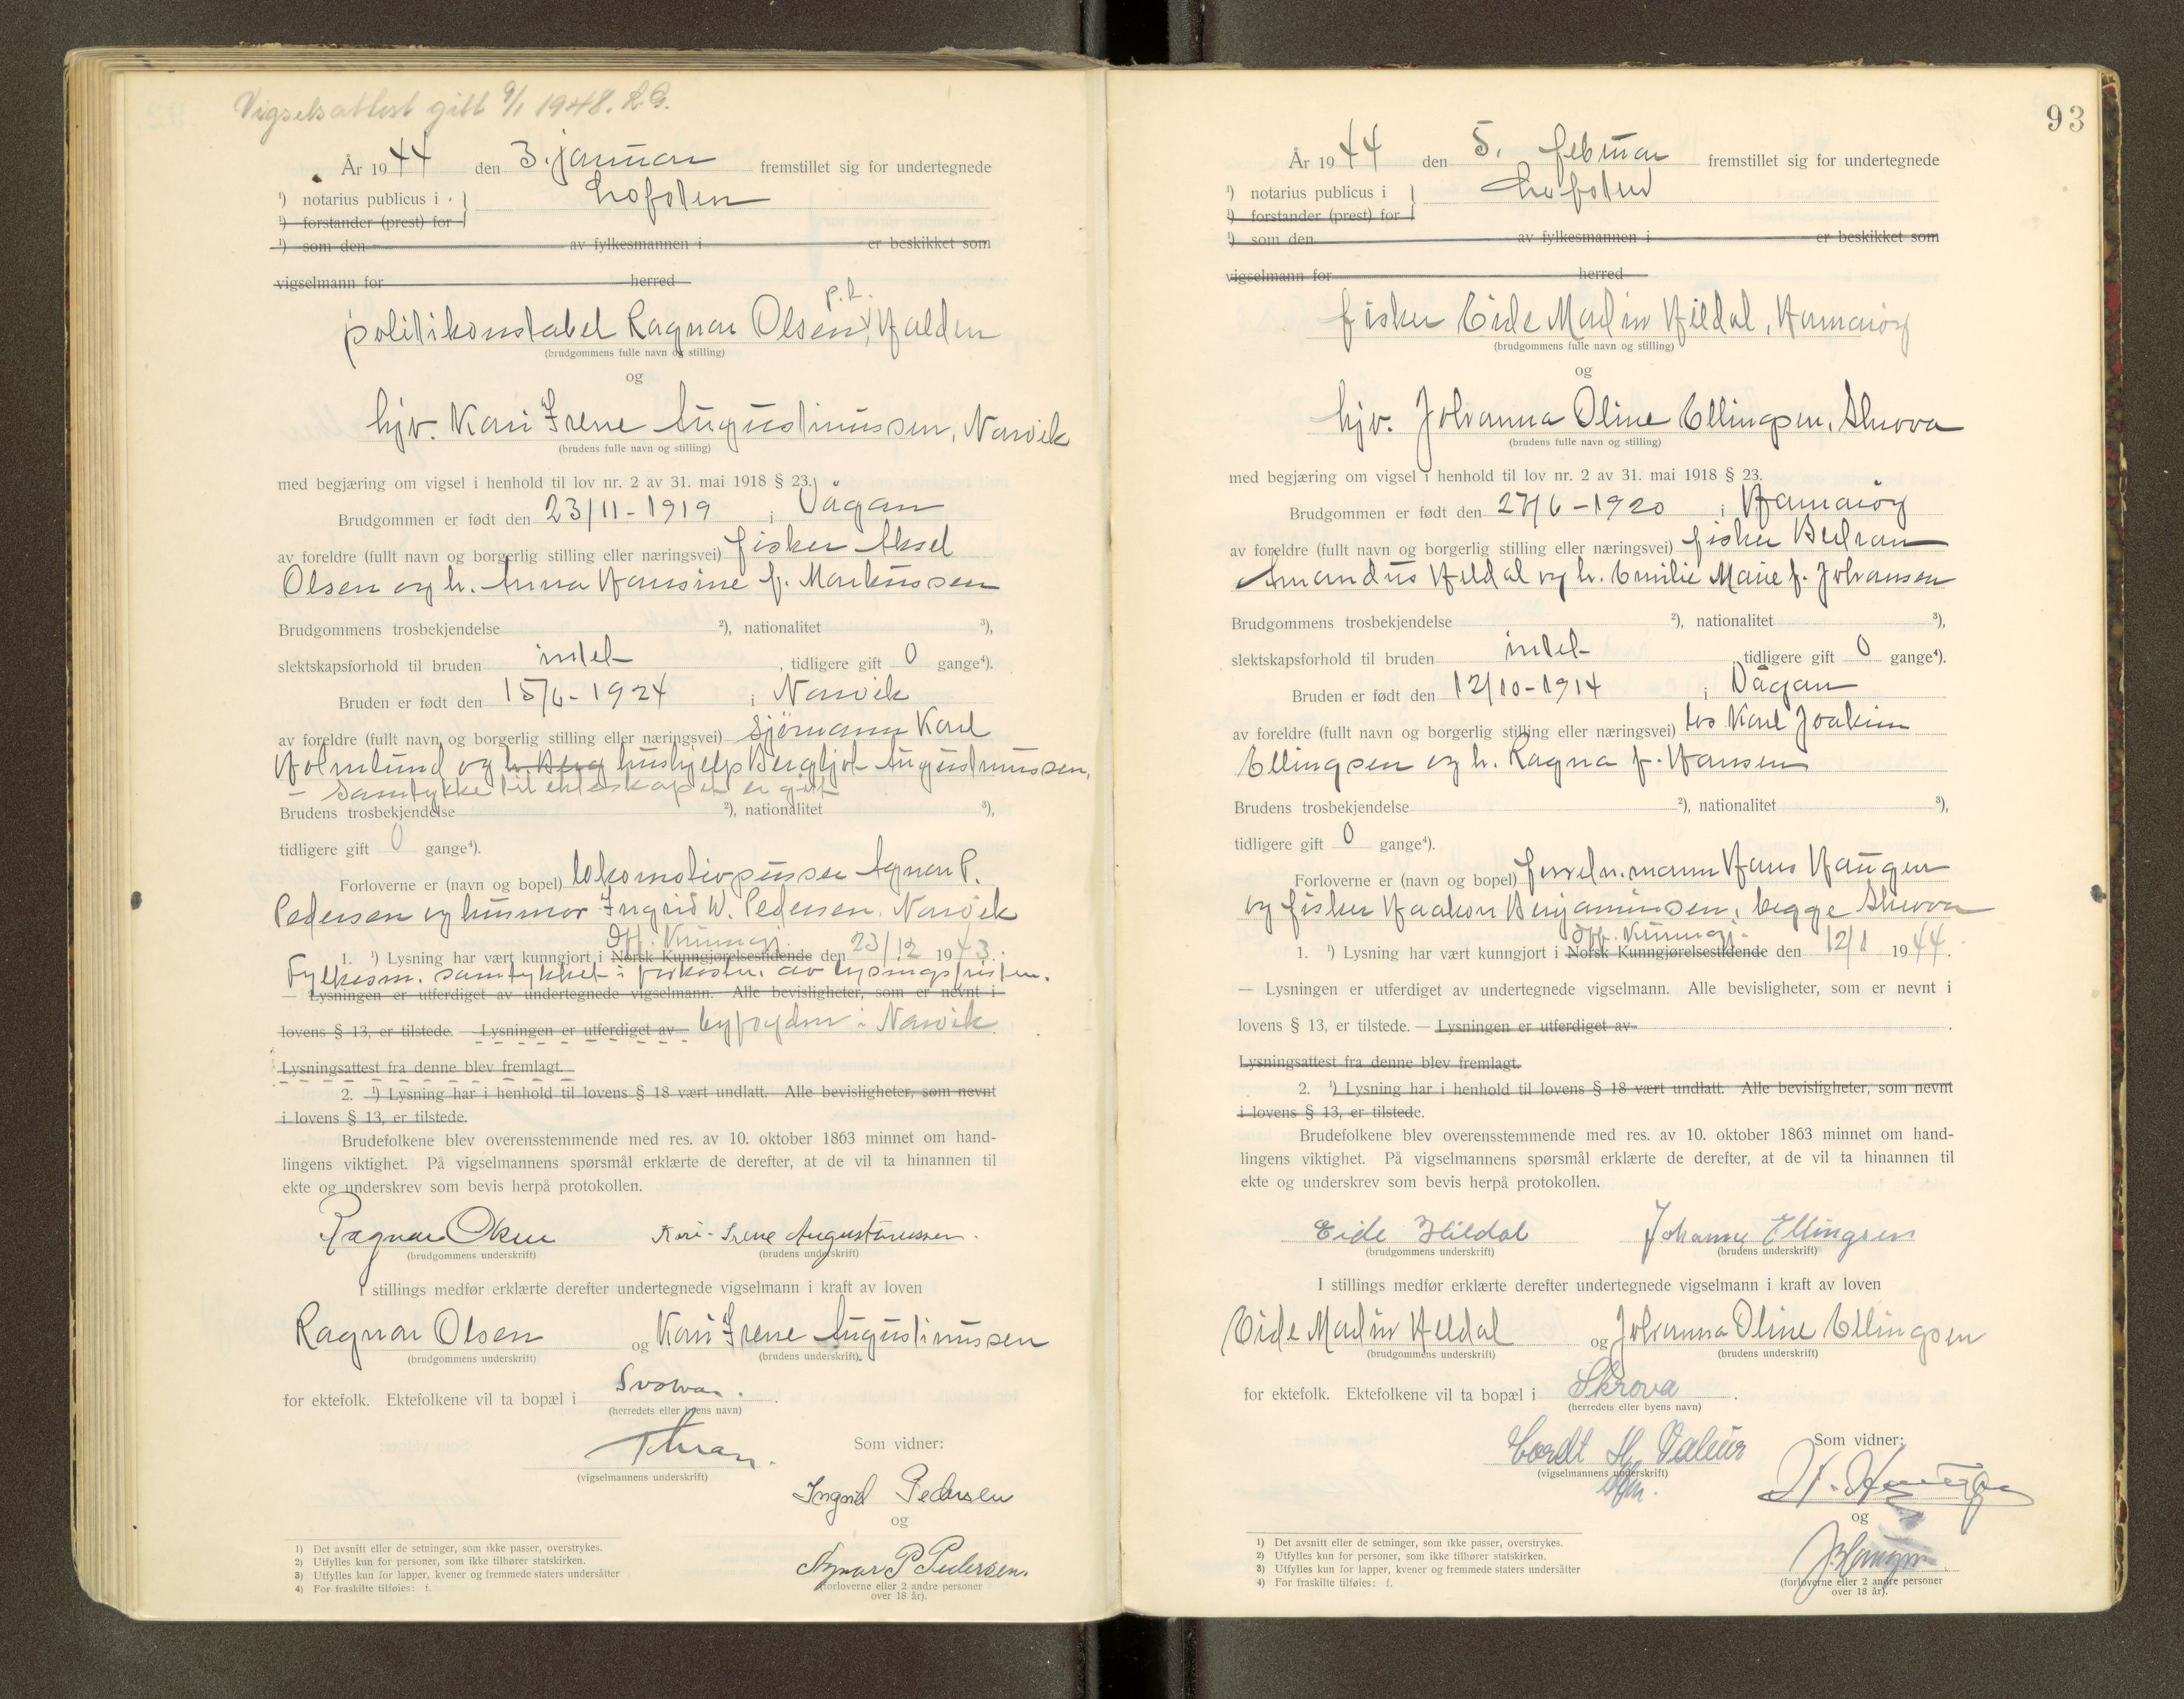 Vigselsattest gitt 9/1 1948. R.G.
År 1944 den 3. januar fremstillet sig for undertegnede
¹) notarius publicus i Lofoten
¹) forstander (prest) for
¹) som den av fylkesmannen i er beskikket som
vigselmann for herred
p.t.
politikonstabel Ragnar Olsen, Halden
(brudgommens fulle navn og stilling)
og
hjv. Kari Irene Augustinussen, Narvik
(brudens fulle navn og stilling)
med begjæring om vigsel i henhold til lov nr. 2 av 31. mai 1918 § 23.
Brudgommen er født den 23/11-1919 i Vågan
av foreldre (fullt navn og borgerlig stilling eller næringsvei) fisker Aksel
Olsen og h. Anna Hansine f. Markussen
Brudgommens trosbekjendelse ²), nationalitet ³),
slektskapsforhold til bruden intet, tidligere gift 0 gange⁴).
Bruden er født den 15/6-1924 i Narvik
av foreldre (fullt navn og borgerlig stilling eller næringsvei) sjömann Karl
Holmlund og h. Berg hushjelp Bergljot Augustinussen,
- Samtykke til ekteskapet er gitt
Brudens trosbekjendelse ²), nationalitet ³),
tidligere gift 0 gange⁴).
Forloverne er (navn og bopel) lokomotivpusser Agnar P.
Pedersen og husmor Ingrid W. Pedersen, Narvik
Off. Kunngj.
1. ¹) Lysning har vært kunngjort i Norsk Kunngjørelsestidende den 23/12 1943.
Fylkesm. samtykket i forkorteln. av lysingsfristen.
— Lysningen er utferdiget av undertegnede vigselmann. Alle bevisligheter, som er nevnt i
lovens § 13, er tilstede. — Lysningen er utferdiget av byfogden i Narvik.
Lysningsattest fra denne blev fremlagt.
2. ¹) Lysning har i henhold til lovens § 18 vært undlatt. Alle bevisligheter, som nevnt
i lovens § 13, er tilstede.
Brudefolkene blev overensstemmende med res. av 10. oktober 1863 minnet om hand-
lingens viktighet. På vigselmannens spørsmål erklærte de derefter, at de vil ta hinannen til
ekte og underskrev som bevis herpå protokollen.
Ragnar Olsen Kari-Irene Augustinussen.
(brudgommens underskrift) (brudens underskrift)
I stillings medfør erklærte derefter undertegnede vigselmann i kraft av loven
Ragnar Olsen og Kari Irene Augustinussen
(brudgommens underskrift) (brudens underskrift)
for ektefolk. Ektefolkene vil ta bopæl i Svolvær.
(herredets eller byens navn)
Som vidner:
(vigselmannens underskrift)
Ingrid Pedersen
og
Agnar P Pedersen.
(forloverne eller 2 andre personer
over 18 år).
1) Det avsnitt eller de setninger, som ikke passer, overstrykes.
2) Utfylles kun for personer, som ikke tilhører statskirken.
3) Utfylles kun for lapper, kvener og fremmede staters undersåtter
4) For fraskilte tilføies: f.
93
År 1944 den 5. februar fremstillet sig for undertegnede
¹) notarius publicus i Lofoten
¹) forstander (prest) for
¹) som den av fylkesmannen i er beskikket som
vigselmann for herred
fisker Eide Martin Hildal, Hamarøy
(brudgommens fulle navn og stilling)
og
hjv. Johanna Oline Ellingsen, Skrova
(brudens fulle navn og stilling)
med begjæring om vigsel i henhold til lov nr. 2 av 31. mai 1918 § 23.
Brudgommen er født den 27/6-1920 i Hamarøy
av foreldre (fullt navn og borgerlig stilling eller næringsvei) fisker Bertran
Amandus Hildal og h. Emilie Marie f. Johansen
Brudgommens trosbekjendelse ²), nationalitet ³),
slektskapsforhold til bruden intet, tidligere gift 0 gange⁴).
Bruden er født den 12/10-1914 i Vågan
av foreldre (fullt navn og borgerlig stilling eller næringsvei) los Karl Joakim
Ellingsen og h. Ragna f. Hansen
Brudens trosbekjendelse ²), nationalitet ³),
tidligere gift 0 gange⁴).
Forloverne er (navn og bopel) forretn.mann Hans Haugen
og fisker Haakon Benjaminsen, begge Skrova
Off. Kunngj.
1. ¹) Lysning har vært kunngjort i Norsk Kunngjørelsestidende den 12/1 1944.
— Lysningen er utferdiget av undertegnede vigselmann. Alle bevisligheter, som er nevnt i
lovens § 13, er tilstede. — Lysningen er utferdiget av
Lysningsattest fra denne blev fremlagt.
2. ¹) Lysning har i henhold til lovens § 18 vært undlatt. Alle bevisligheter, som nevnt
i lovens § 13, er tilstede.
Brudefolkene blev overensstemmende med res. av 10. oktober 1863 minnet om hand-
lingens viktighet. På vigselmannens spørsmål erklærte de derefter, at de vil ta hinannen til
ekte og underskrev som bevis herpå protokollen.
Eide Hildal Johanne Ellingsen
(brudgommens underskrift) (brudens underskrift)
I stillings medfør erklærte derefter undertegnede vigselmann i kraft av loven
Eide Martin Hildal og Johanna Oline Ellingsen
(brudgommens underskrift) (brudens underskrift)
for ektefolk. Ektefolkene vil ta bopæl i Skrova.
(herredets eller byens navn)
Cordt H. Valeur Som vidner:
(vigselmannens underskrift)
H. Haugen
og
(forloverne eller 2 andre personer
over 18 år).
1) Det avsnitt eller de setninger, som ikke passer, overstrykes.
2) Utfylles kun for personer, som ikke tilhører statskirken.
3) Utfylles kun for lapper, kvener og fremmede staters undersåtter
4) For fraskilte tilføies: f.